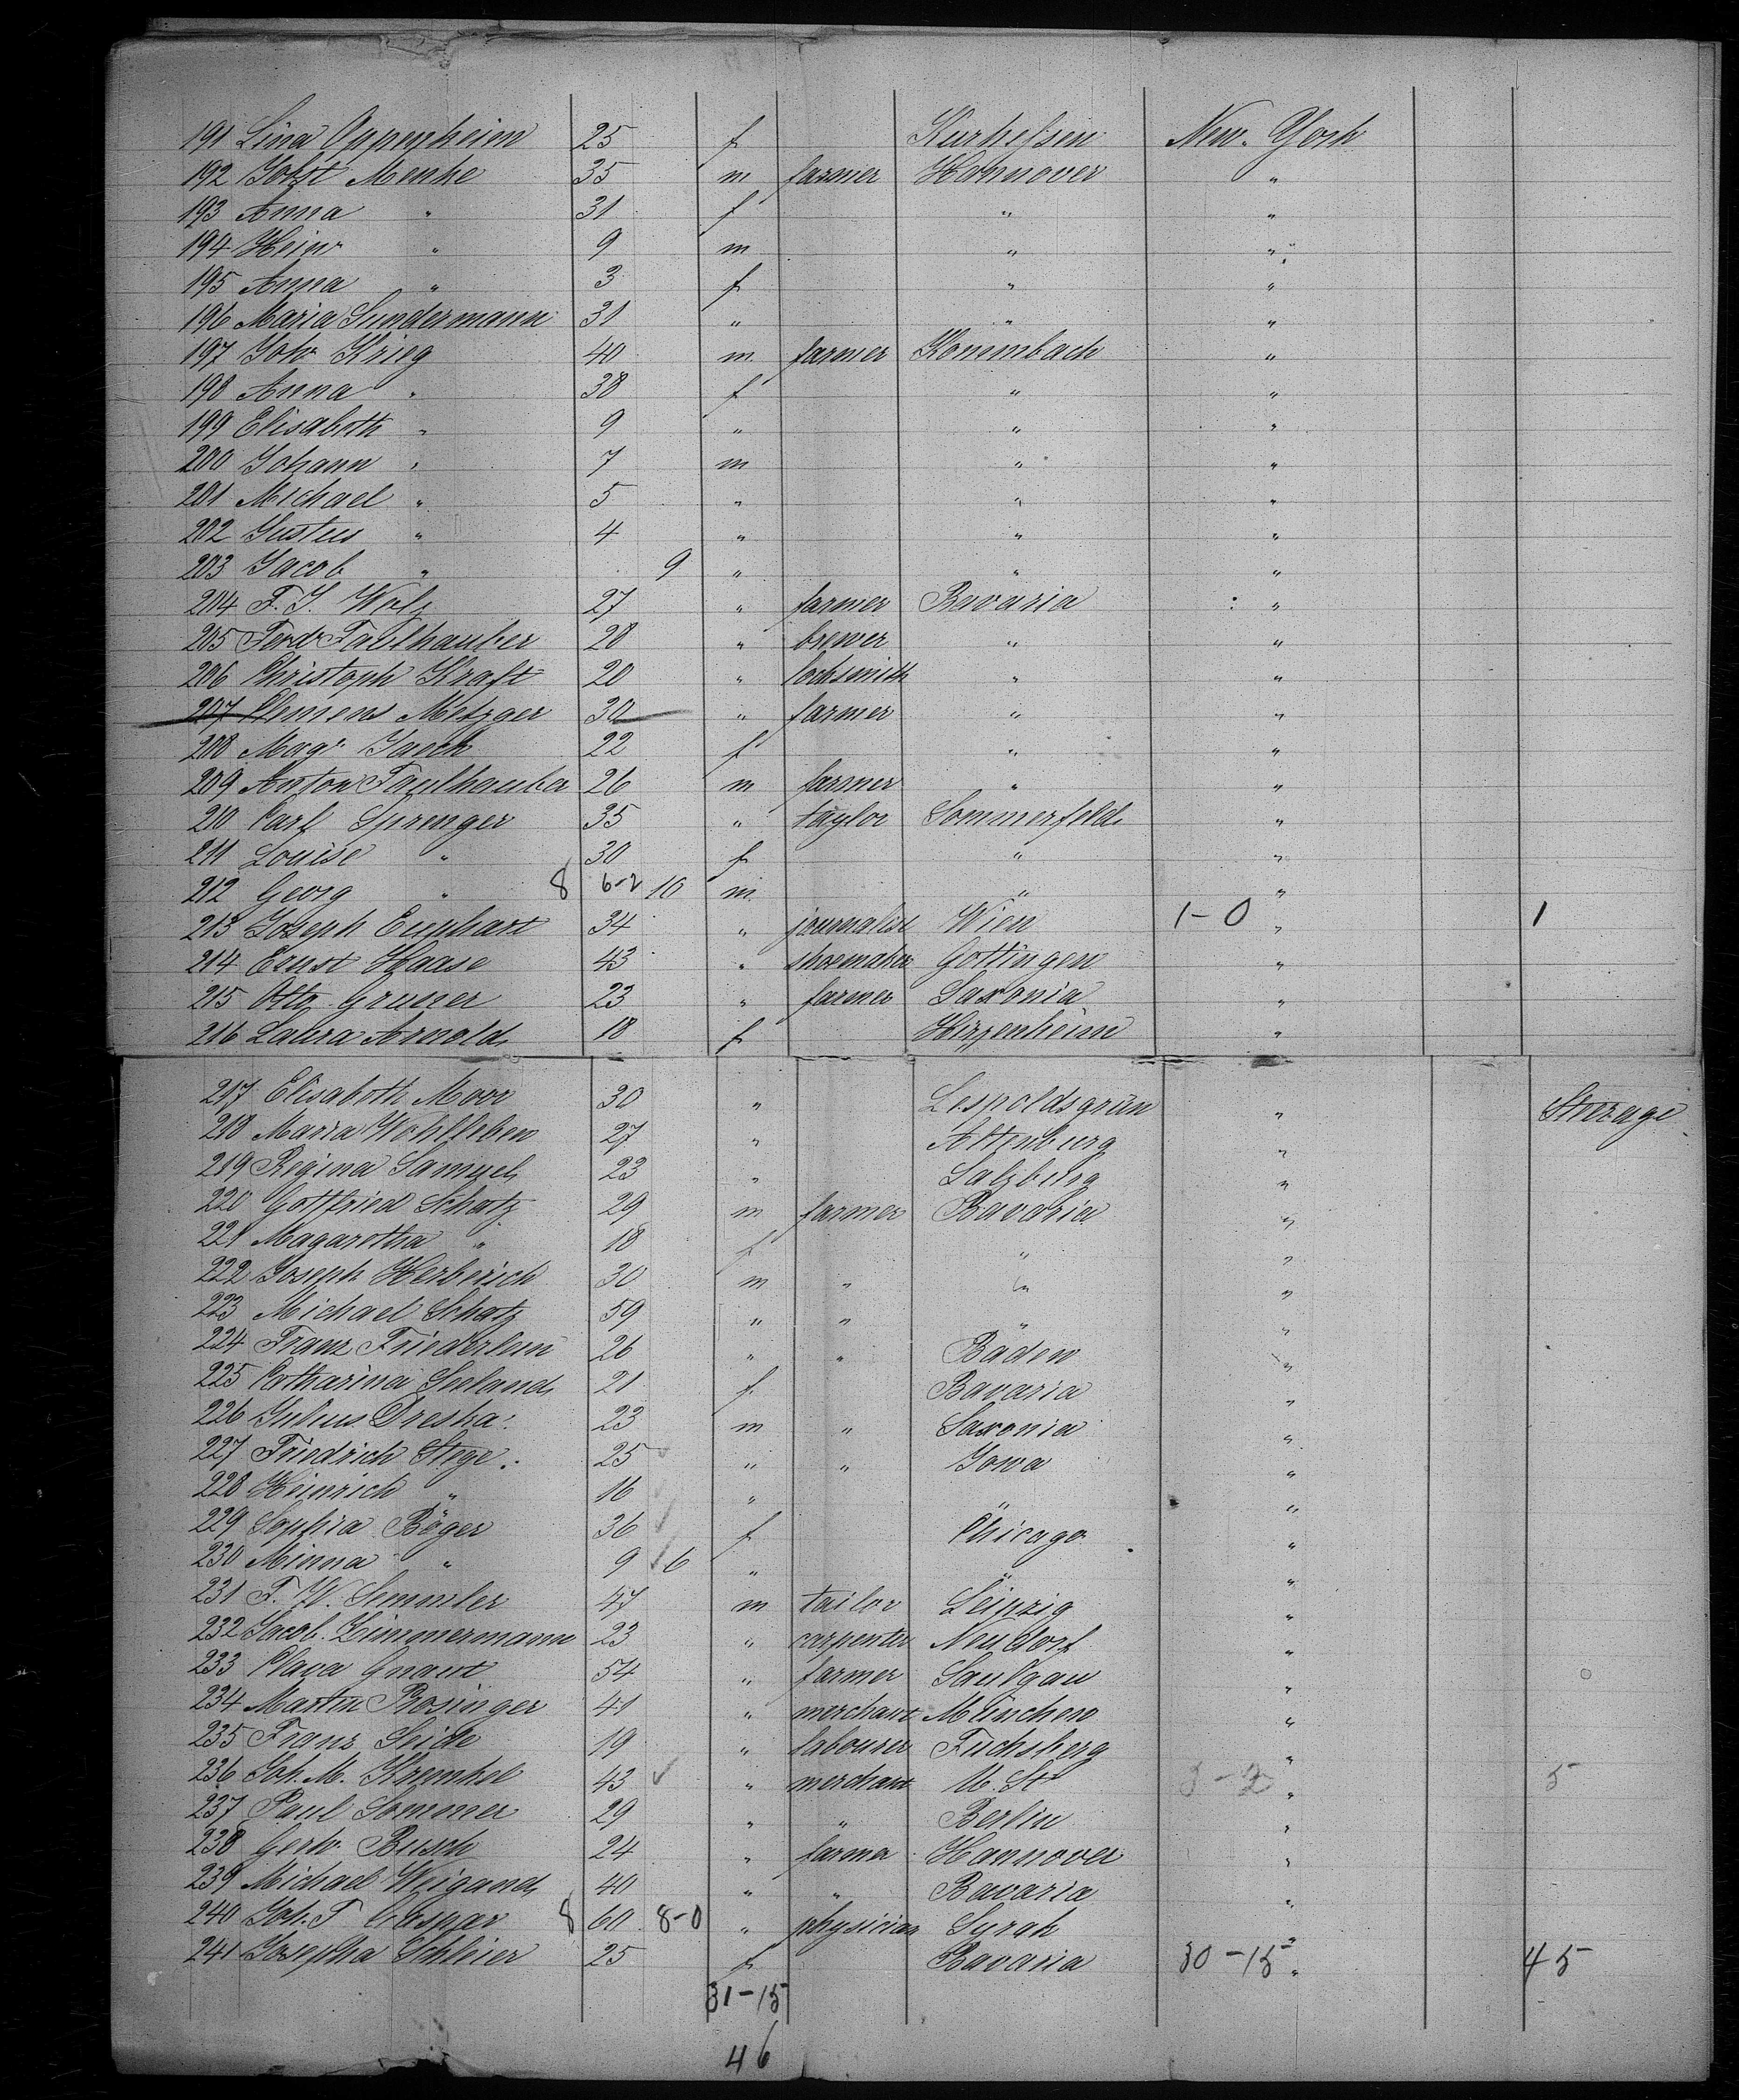 191 Lina Oppenheim 25 f Kurhessen New-York
192 Jobst Menke 35 m farmer Hannover "
193 Anna " 31 f " "
194 Heinr " 9 m " "
195 Anna " 3 f " "
196 Maria Sundermann 31 " " "
197 Joh. Krieg 40 m farmer "
198 Anna " 38 f " "
199 Elisabeth " 9 " " "
200 Johann " 7 m " "
201 Michael " 5 " " "
202 Justus " 4 " " "
203 Jacob " 9 " " "
204 F. J. Wolz 27 " farmer Bavaria "
205 Ferd. Faulhauber 28 " brewer " "
206 Christoph Kraft 20 " locksmith " "
207 Clemens Metzger 30 " farmer " "
208 Magr. 22 f " "
209 Anton Faulhauber 26 m farmer " "
210 Carl Sprenger 35 " taylor Sommerfeld "
211 Louise " 30 f " "
212 Georg " 8 6-2 10 m " "
213 Joseph 34 " journalist Wien 1-0 " 1
214 Ernst Haase 43 " shoemaker Gottingen "
215 Otto Gruner 23 " farmer Saxonia "
216 Laura Arnold 18 f "
217 Elisabeth Moor 30 " Leopoldsgrün " Steerage
218 Maria Wohlleben 27 " Altenburg "
219 Regina Samuel 23 " Salzburg "
220 Gottfried Schatz 29 m farmer Bavaria "
221 Magaretha " 18 f " "
222 Joseph Herberich 30 m " " "
223 Michael Schatz 59 " " " "
224 Franz Friederlein 26 " " Baden "
225 Catharina Seeland 21 f Bavaria "
226 Julius Dreska 23 m " Saxonia "
227 Friedrich Stege 25 " " Iowa "
228 Heinrich " 16 " " "
229 Sophia Böger 36 f Chicago "
230 Minna " 9 6 " " "
231 F. W. Semmler 47 m tailor Leipzig "
232 Jacob Zimmermann 23 " carpenter Neudorf "
233 54 " farmer Saulgau "
234 Martin Rosinger 41 " merchant München "
235 Franz Seide 19 " labourer Fuchsberg "
236 Joh. M. 43 " merchant U. St -2 " 5
237 Paul Sommer 29 " " Berlin "
238 Gerh. Busch 24 " farmer Hannover "
239 Michael Weigand 40 " " Bavaria "
240 Joh. T Caspar 8 60 8-0 " physician "
241 Josepha Schleier 25 f Bavaria 30-15 " 45
31-15
46